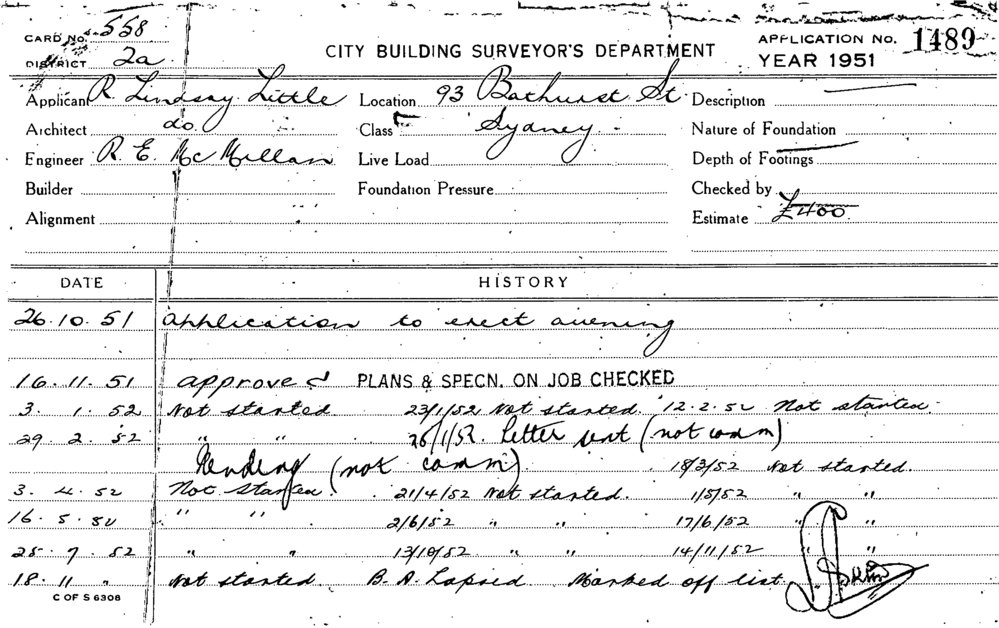 CARD No. 558
DISTRICT 2a
CITY BUILDING SURVEYOR'S DEPARTMENT
APPLICATION No. 1489
YEAR 1951
Applicant R. Lindsay Little Location 93 Bathurst St. Description
Architect do Class Sydney. Nature of Foundation
Engineer R. E. McMillan Live Load Depth of Footings
Builder Foundation Pressure Checked by
Alignment Estimate £400
DATE HISTORY
26.10.51 Application to erect awning
16.11.51 approved PLANS & SPECN. ON JOB CHECKED
3.1.52 Not started 23/1/52 Not started. 12.2.52 Not started.
29.2.52 " " 26/1/52. Letter sent (not comm)
Pending (not comm) 18/3/52 Not started.
3.4.52 Not started. 21/4/52 Not started. 1/5/52 " "
16.5.52 " " 2/6/52 " " 17/6/52 " "
25.7.52 " " 13/10/52 " " 14/11/52 " "
18.11 " Not started B.A. Lapsed Marked off list.
C OF S 6308